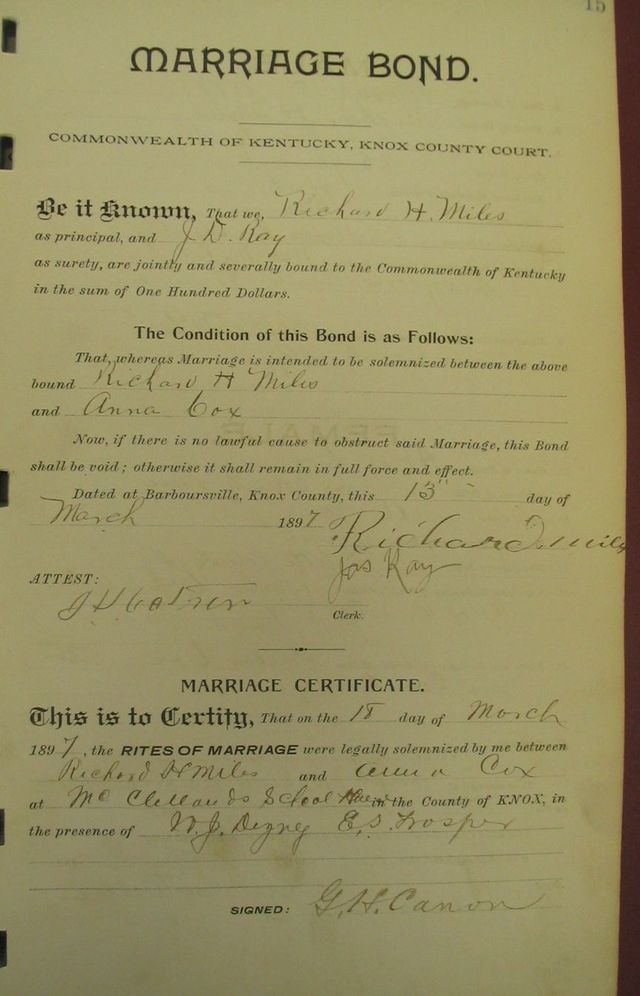 15
MARRIAGE BOND.
COMMONWEALTH OF KENTUCKY, KNOX COUNTY COURT.
Be it Known, That we, Richard H. Miles
as principal, and J. D. Ray
as surety, are jointly and severally bound to the Commonwealth of Kentucky
in the sum of One Hundred Dollars.
The Condition of this Bond is as Follows:
That, whereas Marriage is intended to be solemnized between the above
bound Richard H Miles
and Anna Cox
Now, if there is no lawful cause to obstruct said Marriage, this Bond
shall be void; otherwise it shall remain in full force and effect.
Dated at Barboursville, Knox County, this 13" day of
March 1897 Richard Miles
Jas Ray
ATTEST:
Clerk.
MARRIAGE CERTIFICATE.
This is to Certify, That on the 18 day of March
1897, the RITES OF MARRIAGE were legally solemnized by me between
Richard H Miles and Anna Cox
at Mc Clellands School in the County of KNOX, in
the presence of W. J. E. S.
SIGNED: G. H. Canon